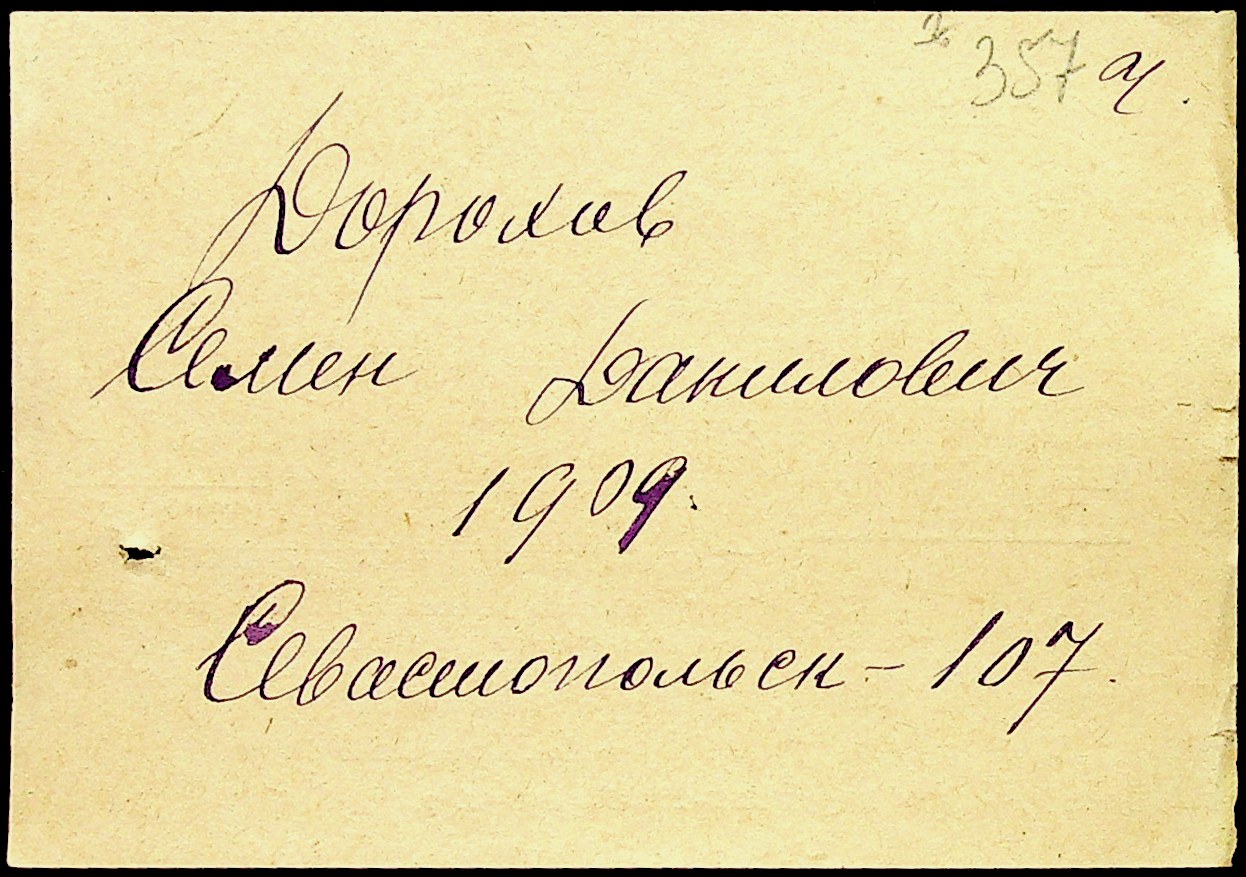 357 ч.
Дорохов
Семен Данилович
1909.
Севастопольск - 107.